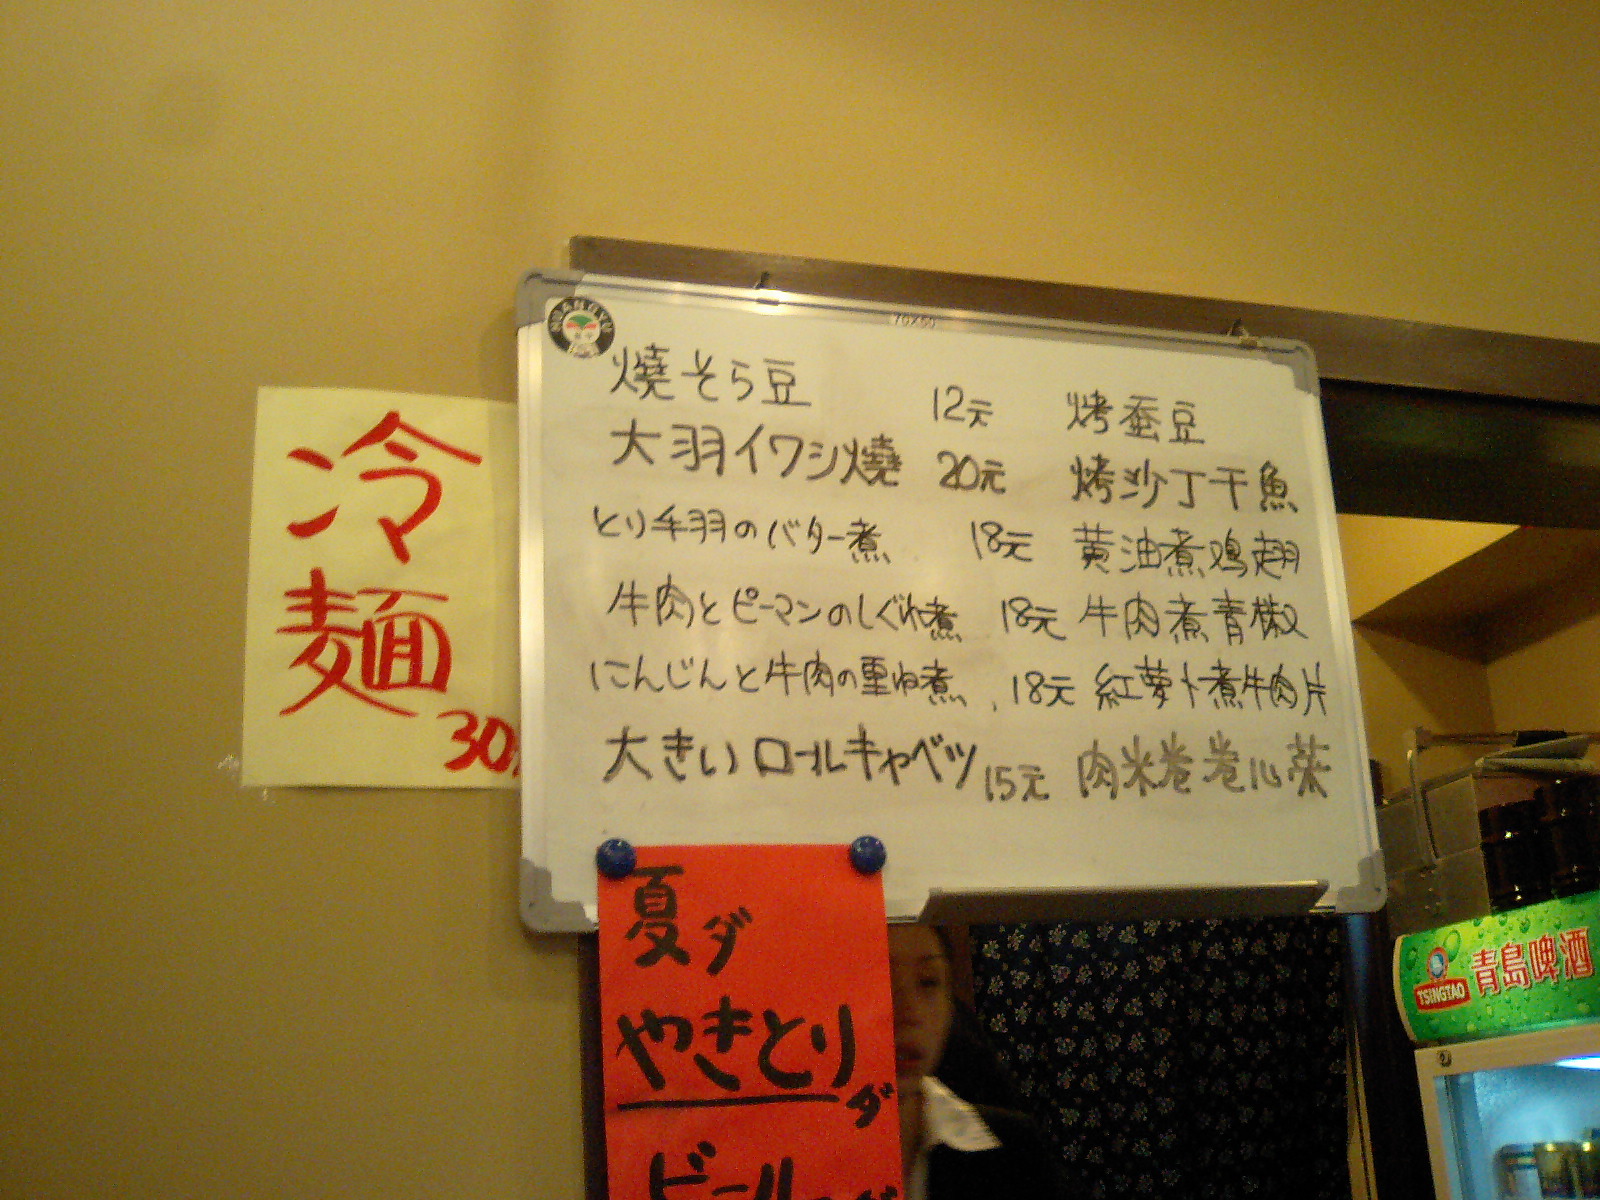 70X50
燒そら豆 12元 烤蚕豆
大羽イワシ燒 20元 烤沙丁干魚
とり手羽のバター煮 18元 黄油煮鸡翅
牛肉とピーマンのしぐれ煮 18元 牛肉煮青椒
にんじんと牛肉の重ね煮 18元 紅萝卜煮牛肉片
大きい ロールキャベツ 15元 肉米卷卷心菜
冷
麺
30
夏ダ
やきとりダ
ビール
TSINGTAO 青島啤酒